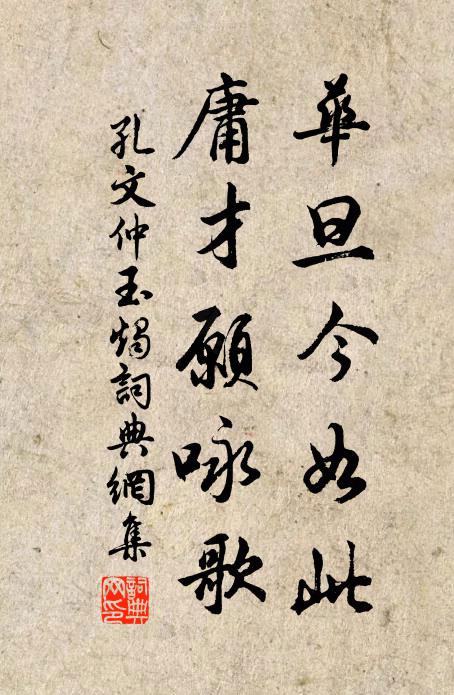 華旦今如此
庸才願咏歌
孔文仲玉燭詞典網集
詞典网印